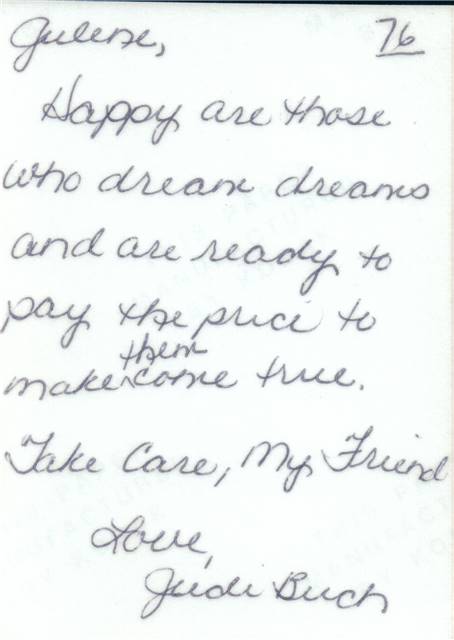 Julene,
76
Happy are those
who dream dreams
and are ready to
pay the price to
make them come true.
Take Care, My Friend
Love,
Judi Buch